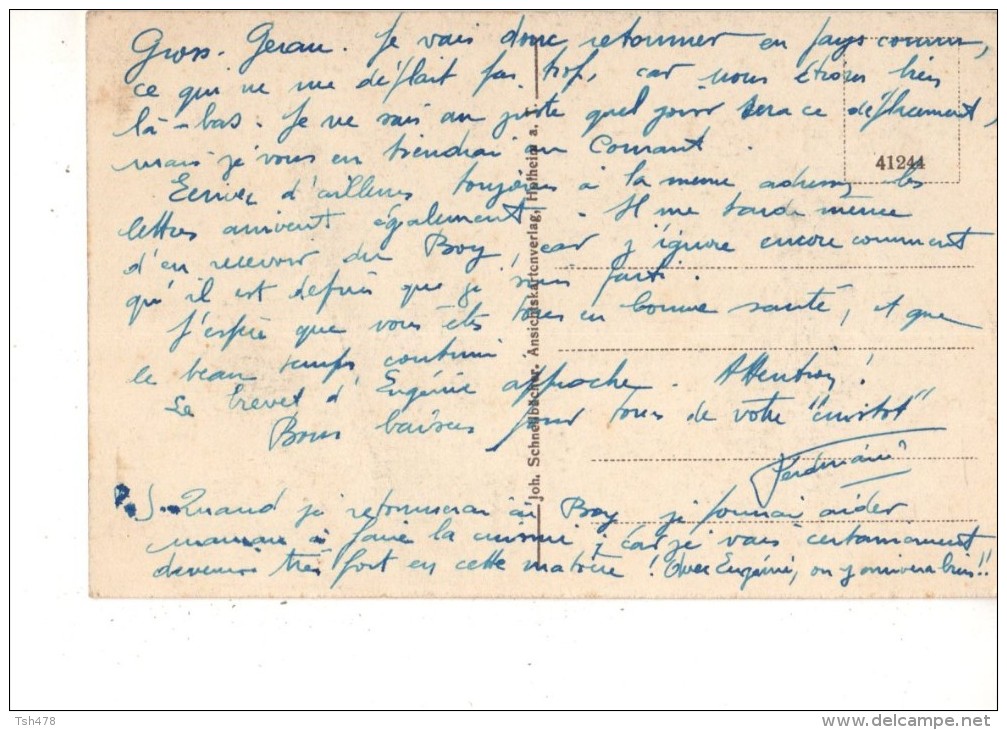 Gross-Gerau. Je vais donc retourner en pays connu,
ce qui ne me déplait pas trop, car nous étions bien
là-bas. Je ne sais au juste quel jour sera ce déplacement,
mais je vous en tiendrai au Courant.
Ecrivez d'ailleurs toujours à la même adresse, les
lettres arrivent également. Il me tarde même
d'en recevoir du Boy, car j'ignore encore comment
qu'il est depuis que je suis parti.
J'espère que vous êtes tous en bonne santé, et que
le beau temps continue
Le brevet d'Eugénie approche. Attention!
Bons baisers pour tous de votre "cuistot"
Ferdinand
P.S. Quand je retournerai au Boy je pourrai aider
maman à faire la cuisine, car je vais certainement
devenir très fort en cette matière! Avec Eugénie, on y arrivera bien!!
Joh. Schnellbächer, Ansichtskartenverlag, Hofheim a.
41244
Tsh478
www.delcampe.net